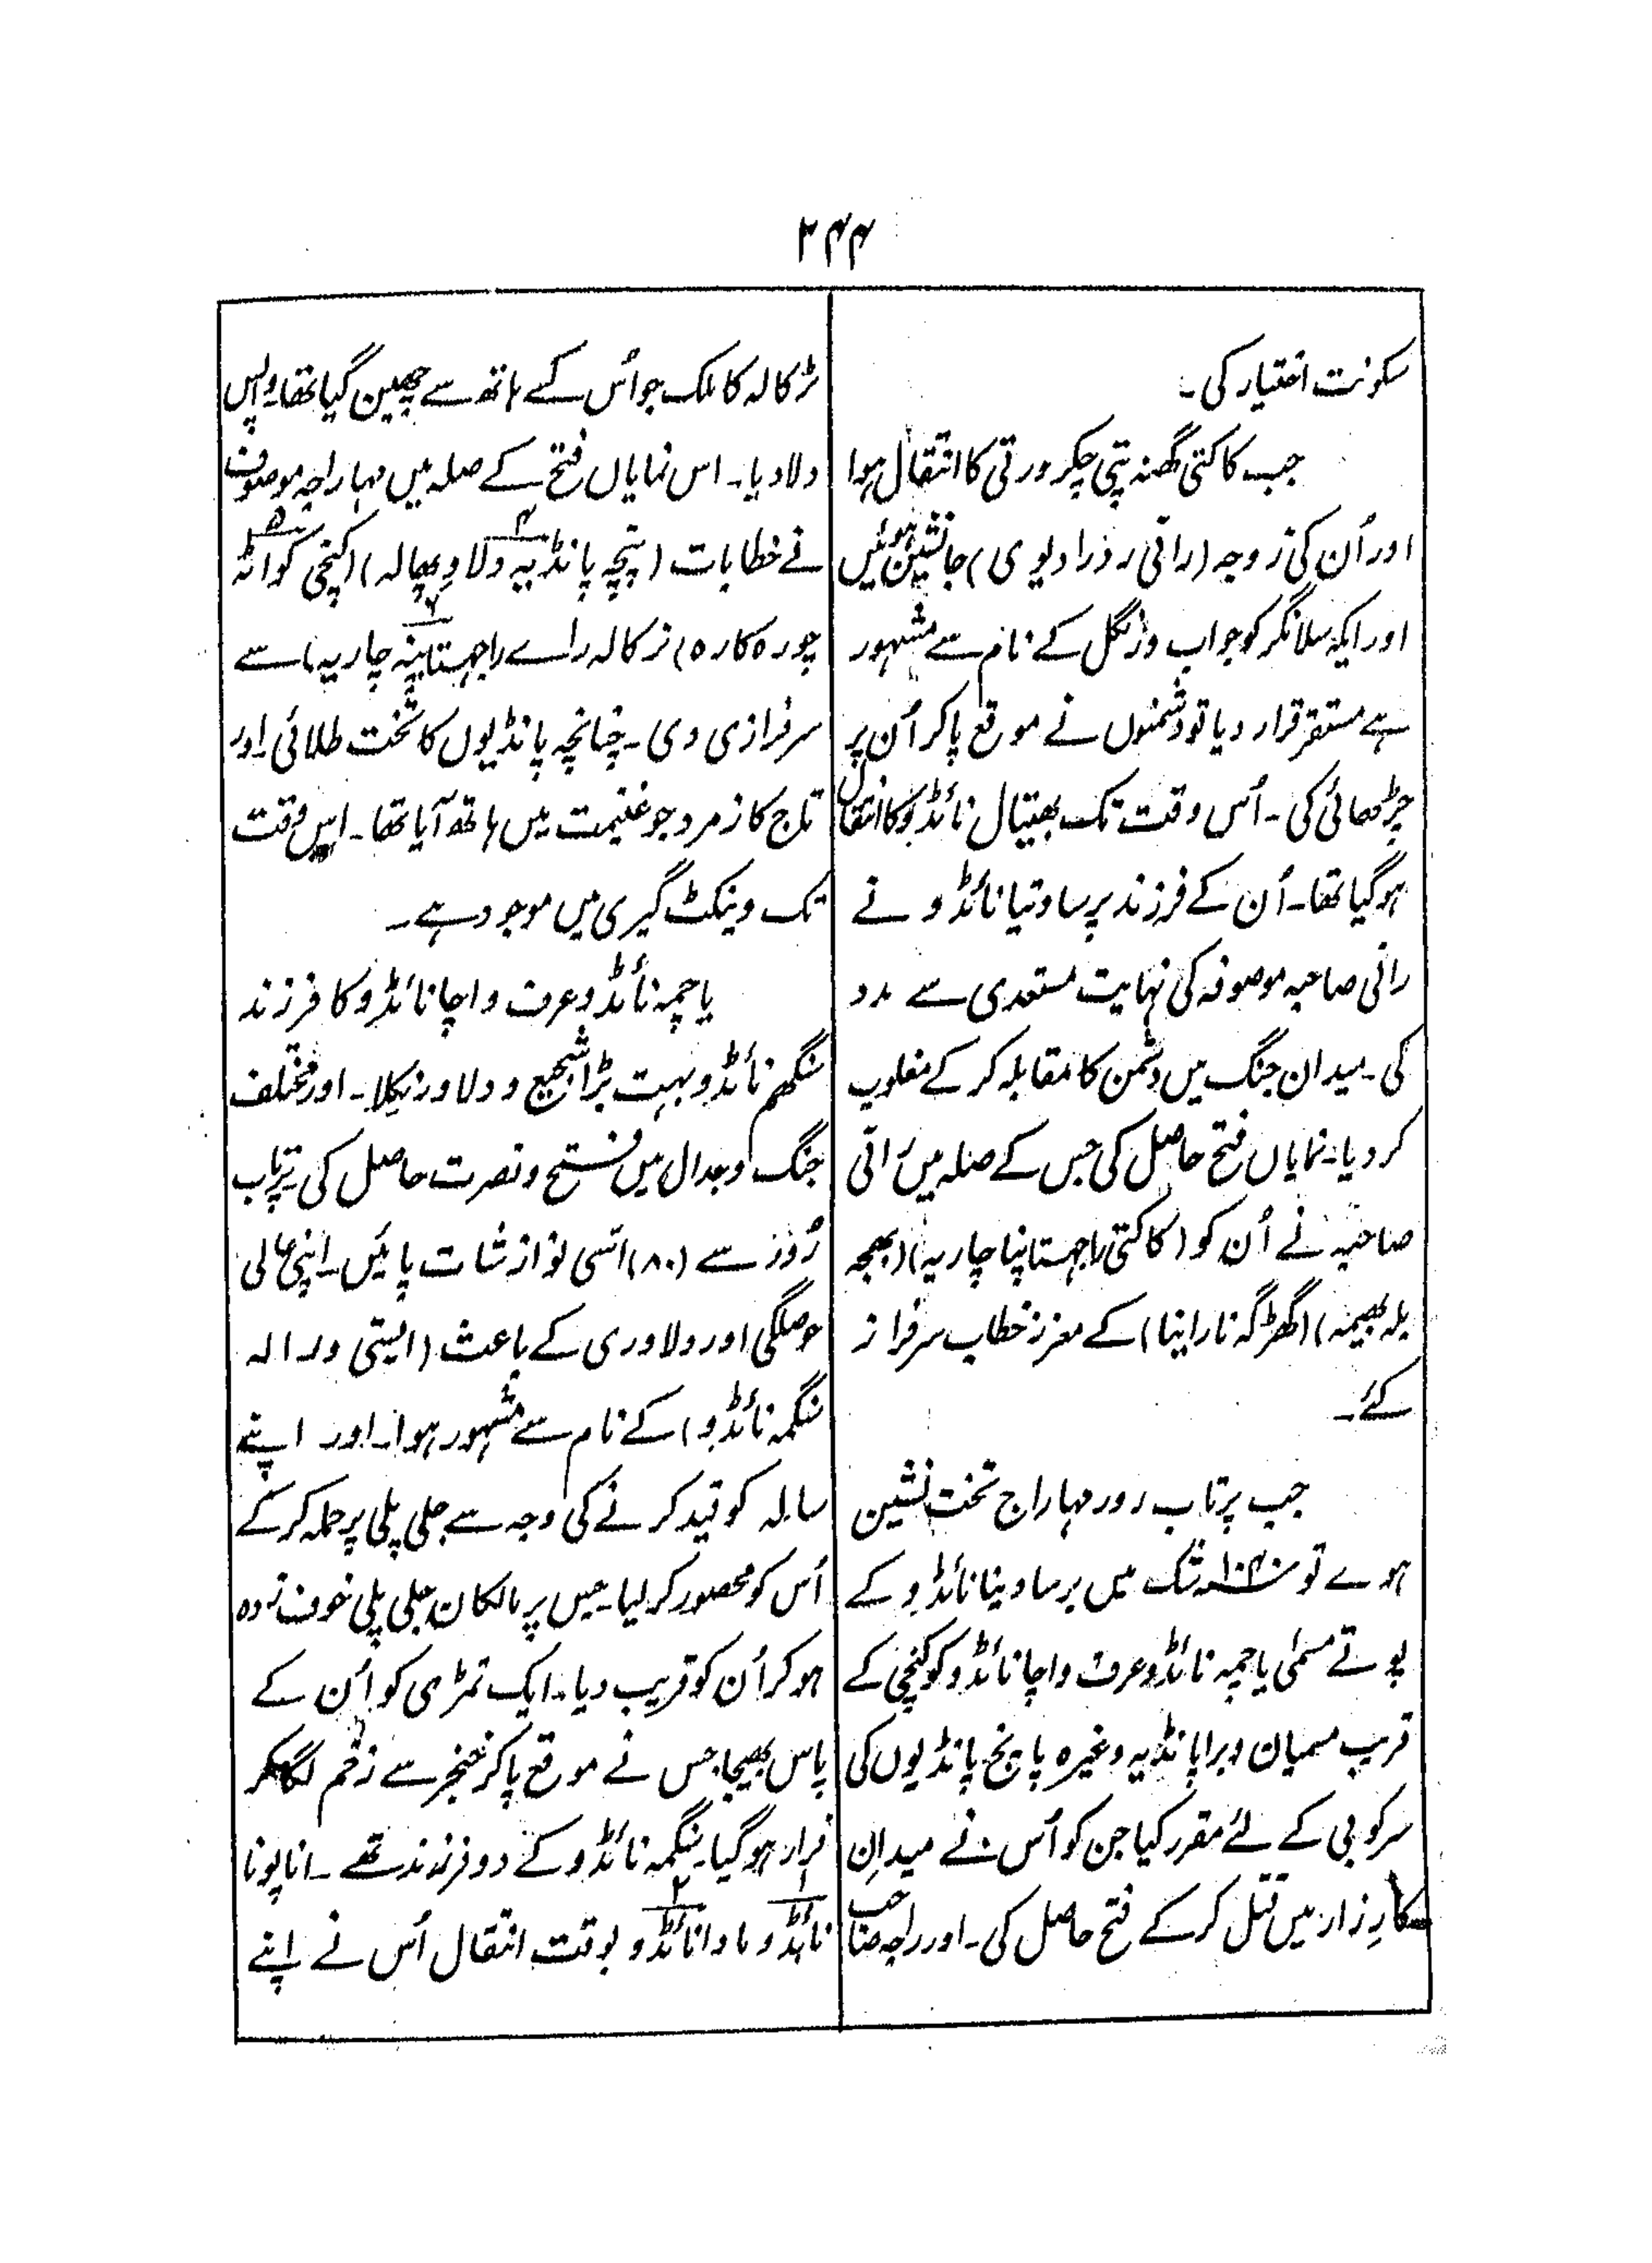 ۲۴۴
سکونت اختیار کی۔
جب کاکتی گھنہ پتی چکرورتی کا انتقال ہوا
اور اُن کی زوجہ (رانی ردرا دیوی) جانشین ہوئیں
اور ایکہ سلانگر کو جو اب ورنگل کے نام سے مشہور
ہے مستقر قرار دیا تو دشمنوں نے موقع پا کر اُن پر
چڑھائی کی۔ اُس وقت تک بھیتال نائڈو کا انتقال
ہوگیا تھا۔ اُن کے فرزند پرساوتیا نائڈو نے
رانی صاحبہ موصوفہ کی نہایت مستعدی سے مدد
کی۔ میدان جنگ میں دشمن کا مقابلہ کر کے مغلوب
کر دیا۔ نمایاں فتح حاصل کی جس کے صلہ میں رانی
صاحبہ نے اُن کو (کاکتی راجہستاپنا چاریہ) (بھجہ
بلہ بھیمہ) (گھڑگہ نارائنا) کے معزز خطاب سرفراز
کئے۔
جب پرتاب رودر مہاراج تخت نشین
ہوے تو ۱۰۴۰؁ شک میں پرساوتیا نائڈو کے
پوتے مسمی یاچمہ نائڈو عرف واچا نائڈو کو کنچی کے
قریب مسمیان ویرا پانڈیہ وغیرہ پانچ پانڈیوں کی
سرکوبی کے لئے مقرر کیا جن کو اُس نے میدانِ
کارِزار میں قتل کر کے فتح حاصل کی۔ اور راجہ صاحب
ڑکالہ کا ملک جو اُس کے ہاتھ سے چھین گیا تھا واپس
دلا دیا۔ اس نمایاں فتح کے صلہ میں مہاراجہ موصوف
نے خطابات (پنچہ پانڈیہ ۴ دلاوبھالہ) (کنچی کواٹہ ۵
چورہ کارہ) ترکالہ راے راجہستاپنہ ۶ چاریہ) سے
سرفرازی دی۔ چنانچہ پانڈیوں کا تخت طلائی اور
تاج کا زمرد جو غنیمت میں ہاتھ آیا تھا۔ اس وقت
تک وینکٹ گیری میں موجود ہے۔
یاچمہ نائڈو عرف واچا نائڈو کا فرزند
سنگھم نائڈو بہت بڑا شجیع و دلاور نکلا۔ اور مختلف
جنگ و جدال میں فتح و نصرت حاصل کی پرتاب
رُودر سے (۸۰) اسّی نوازشات پائیں۔ اپنی عالی
حوصلگی اور دلاوری کے باعث (ایستی ورالہ
سنگمہ نائڈو) کے نام سے مشہور ہوا۔ اور اپنے
سالہ کو قید کرنے کی وجہ سے جلی پلی پر حملہ کر کے
اُس کو محصور کر لیا۔ جس پر مالکان جلی پلی خوف زدہ
ہو کر اُن کو فریب دیا۔ ایک تمڑی کو اُن کے
پاس بھیجا جس نے موقع پا کر خنجر سے زخم لگا کر
فرار ہوگیا۔ سنگمہ نائڈو کے دو فرزند تھے۔ اناپوتا
نائڈو ۱ مادا نائڈو ۲ بوقت انتقال اُس نے اپنے